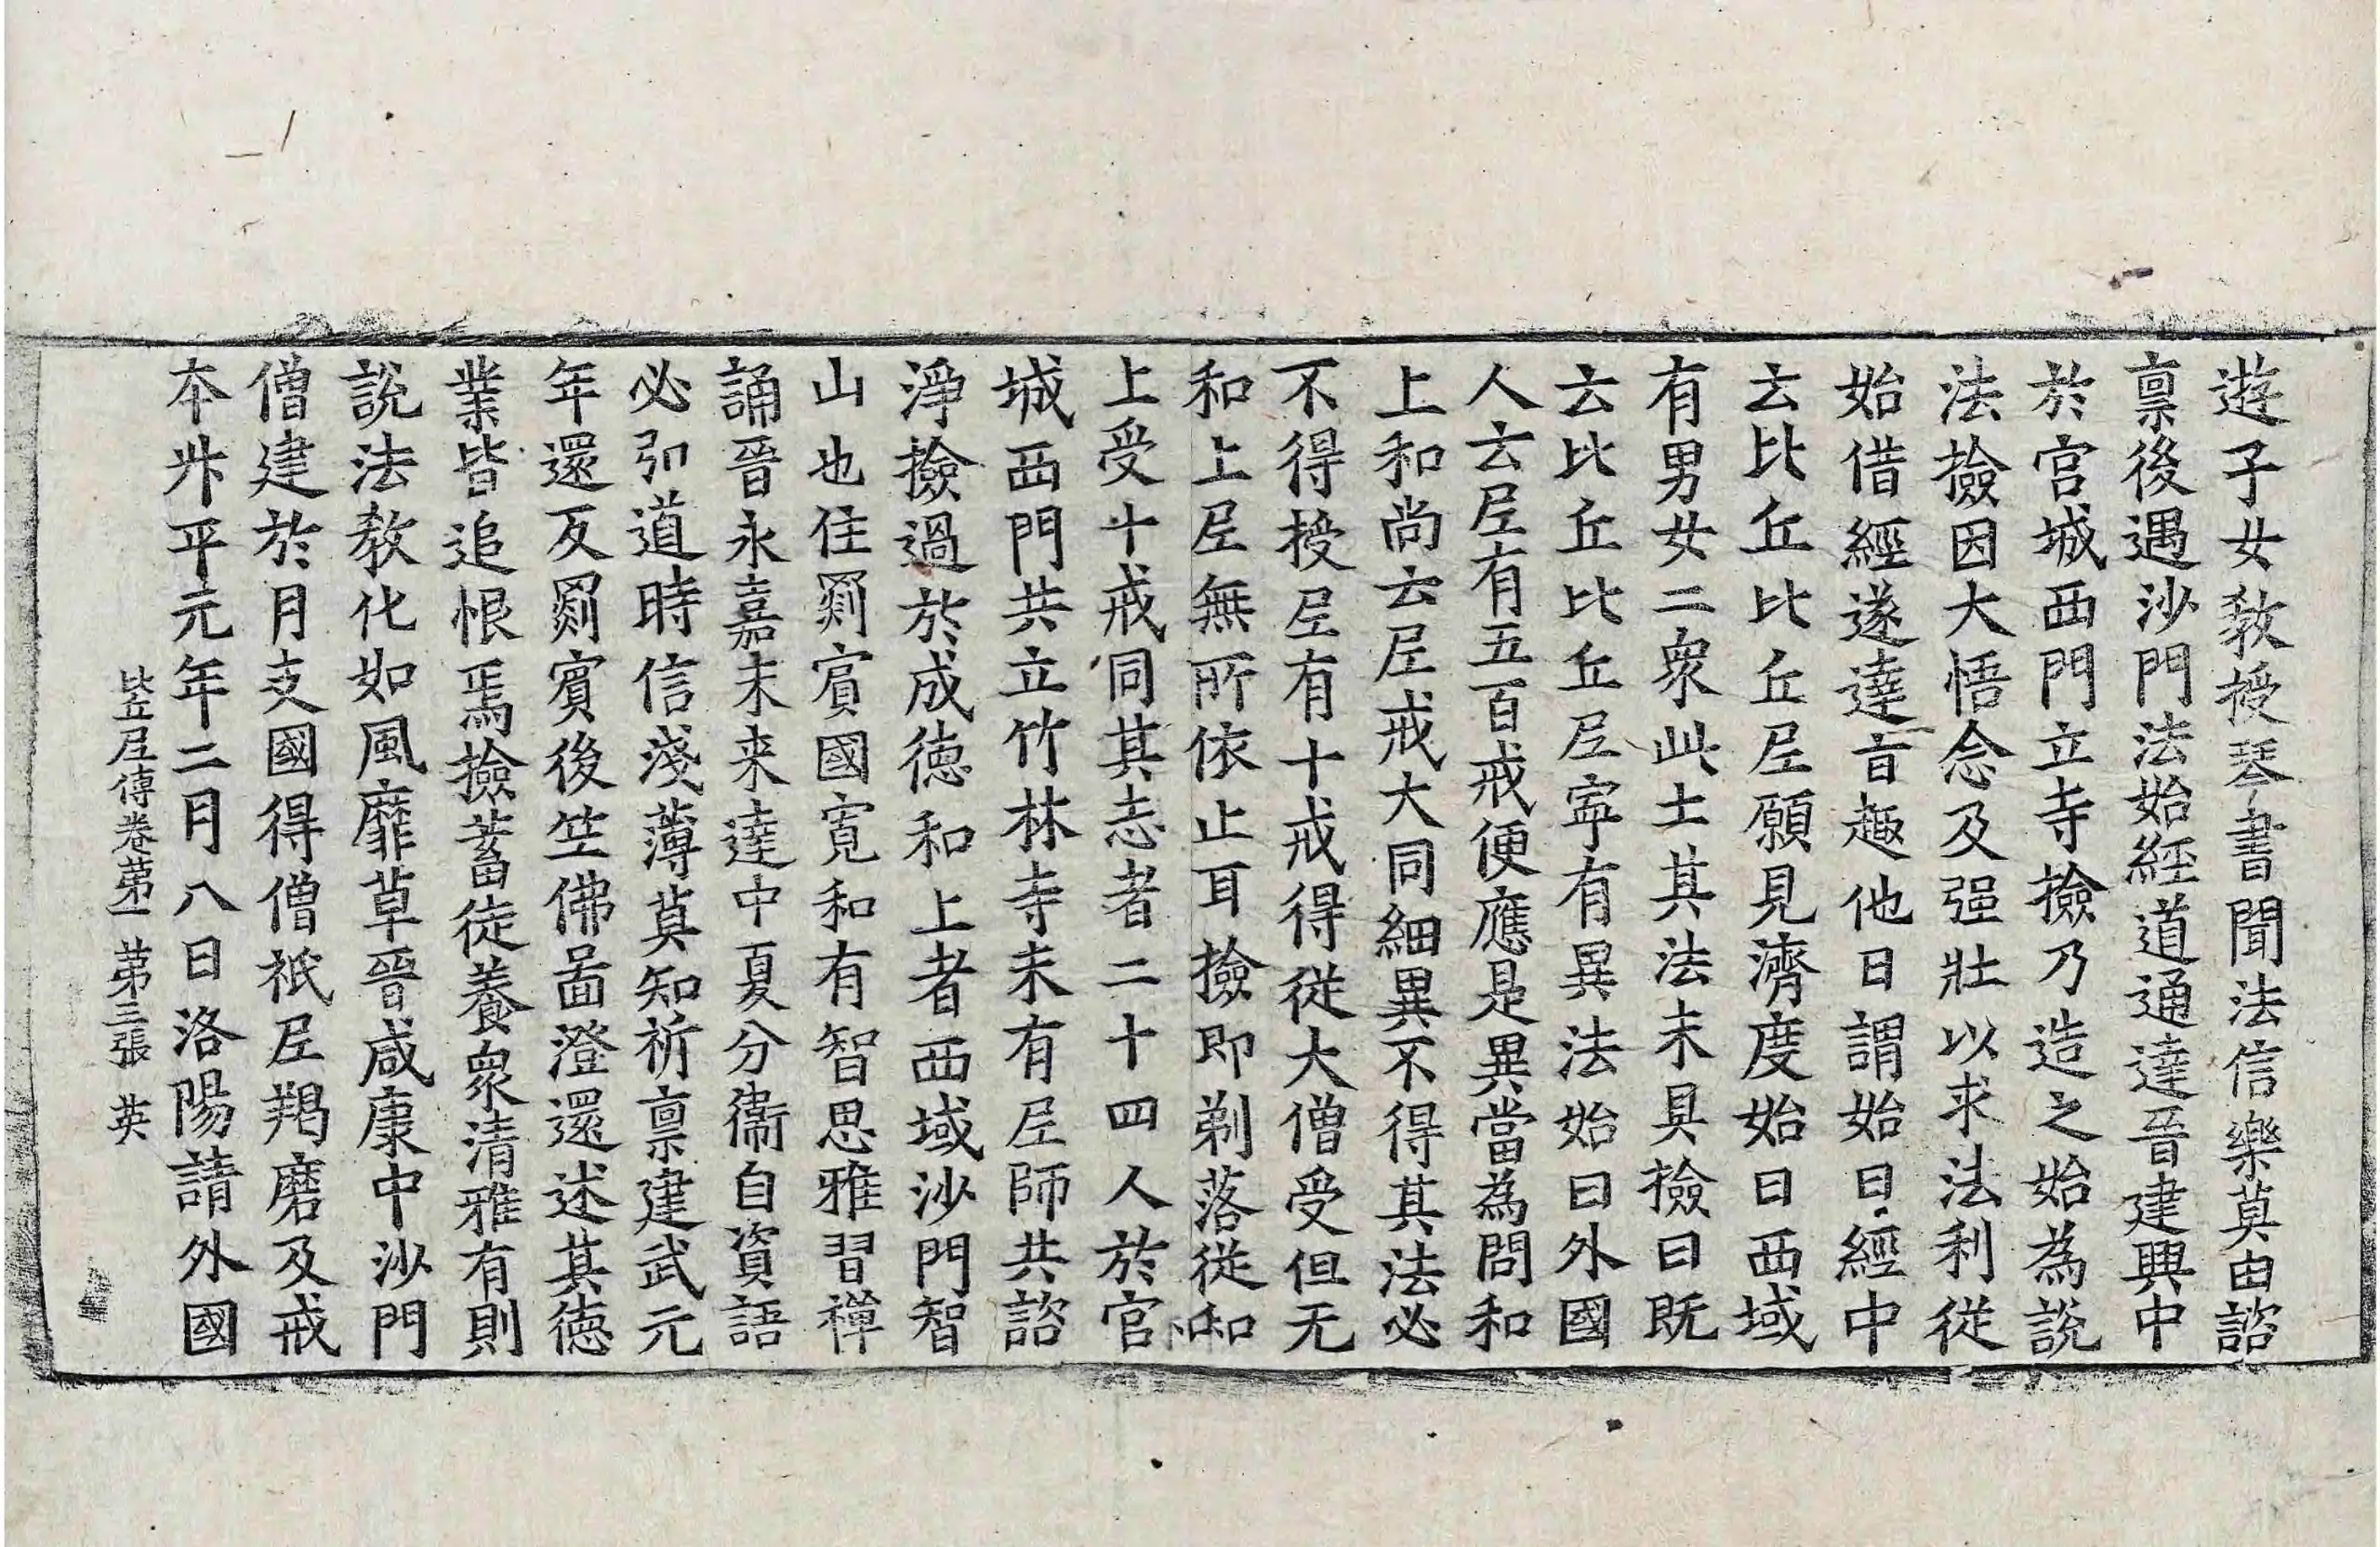 遊子女敎授琴書聞法信樂莫由諮
禀後遇沙門法始經道通達晉建興中
於宫城西門立寺撿乃造之始為說
法撿因大悟念及强壯以求法利從
始借經遂達旨趣他日謂始曰經中
云比丘比丘尼願見濟度始曰西域
有男女二衆此土其法未具撿曰既
云比丘比丘尼寕有異法始曰外國
人云尼有五百戒便應是異當為問和
上和尚云尼戒大同細異不得其法必
不得授尼有十戒得從大僧受但无
和上尼無所依止耳撿即剃落從和
上受十戒同其志者二十四人於官
城西門共立竹林寺未有尼師共諮
淨撿過於成徳和上者西域沙門智
山也住罽賔國寬和有智思雅習禪
誦晉永嘉末来達中夏分衞自資語
必弘道時信淺薄莫知祈禀建武元
年還反罽賓後竺佛啚澄還述其徳
業皆追恨焉撿蓄徒養衆清雅有則
說法敎化如風靡草晉咸康中沙門
僧建於月支國得僧祇尼羯磨及戒
本升平元年二月八日洛陽請外國
比丘尼傳卷苐一 苐三張 英